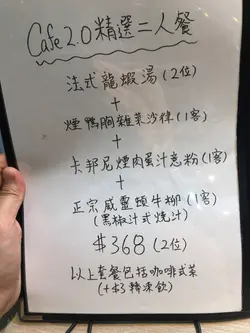 Cafe 2.0 精選二人餐
法式龍蝦湯(2位)
+
煙鴨胸雜菜沙律(1客)
+
卡邦尼煙肉蛋汁意粉(1客)
+
正宗威靈頓牛柳(1客)
(黑椒汁或燒汁)
$368(2位)
以上套餐包括咖啡或茶
(+$3 轉凍飲)